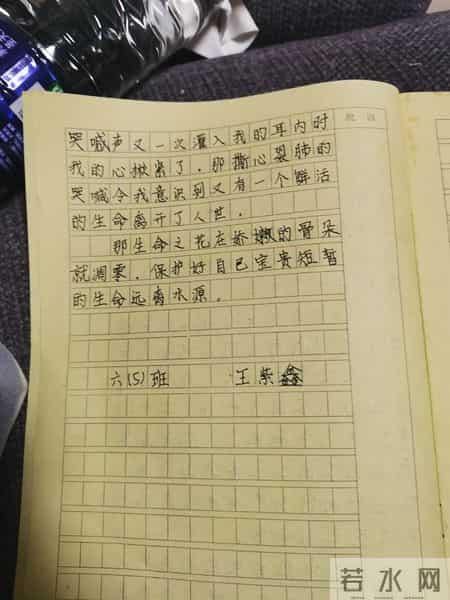 哭喊声又一次灌入我的耳内时
我的心揪紧了，那撕心裂肺的
哭喊令我意识到又有一个鲜活
的生命离开了人世．
那生命之花在娇嫩的骨朵
就凋零．保护好自己宝贵短暂
的生命远离水源．
六(5)班 王紫鑫
若水网